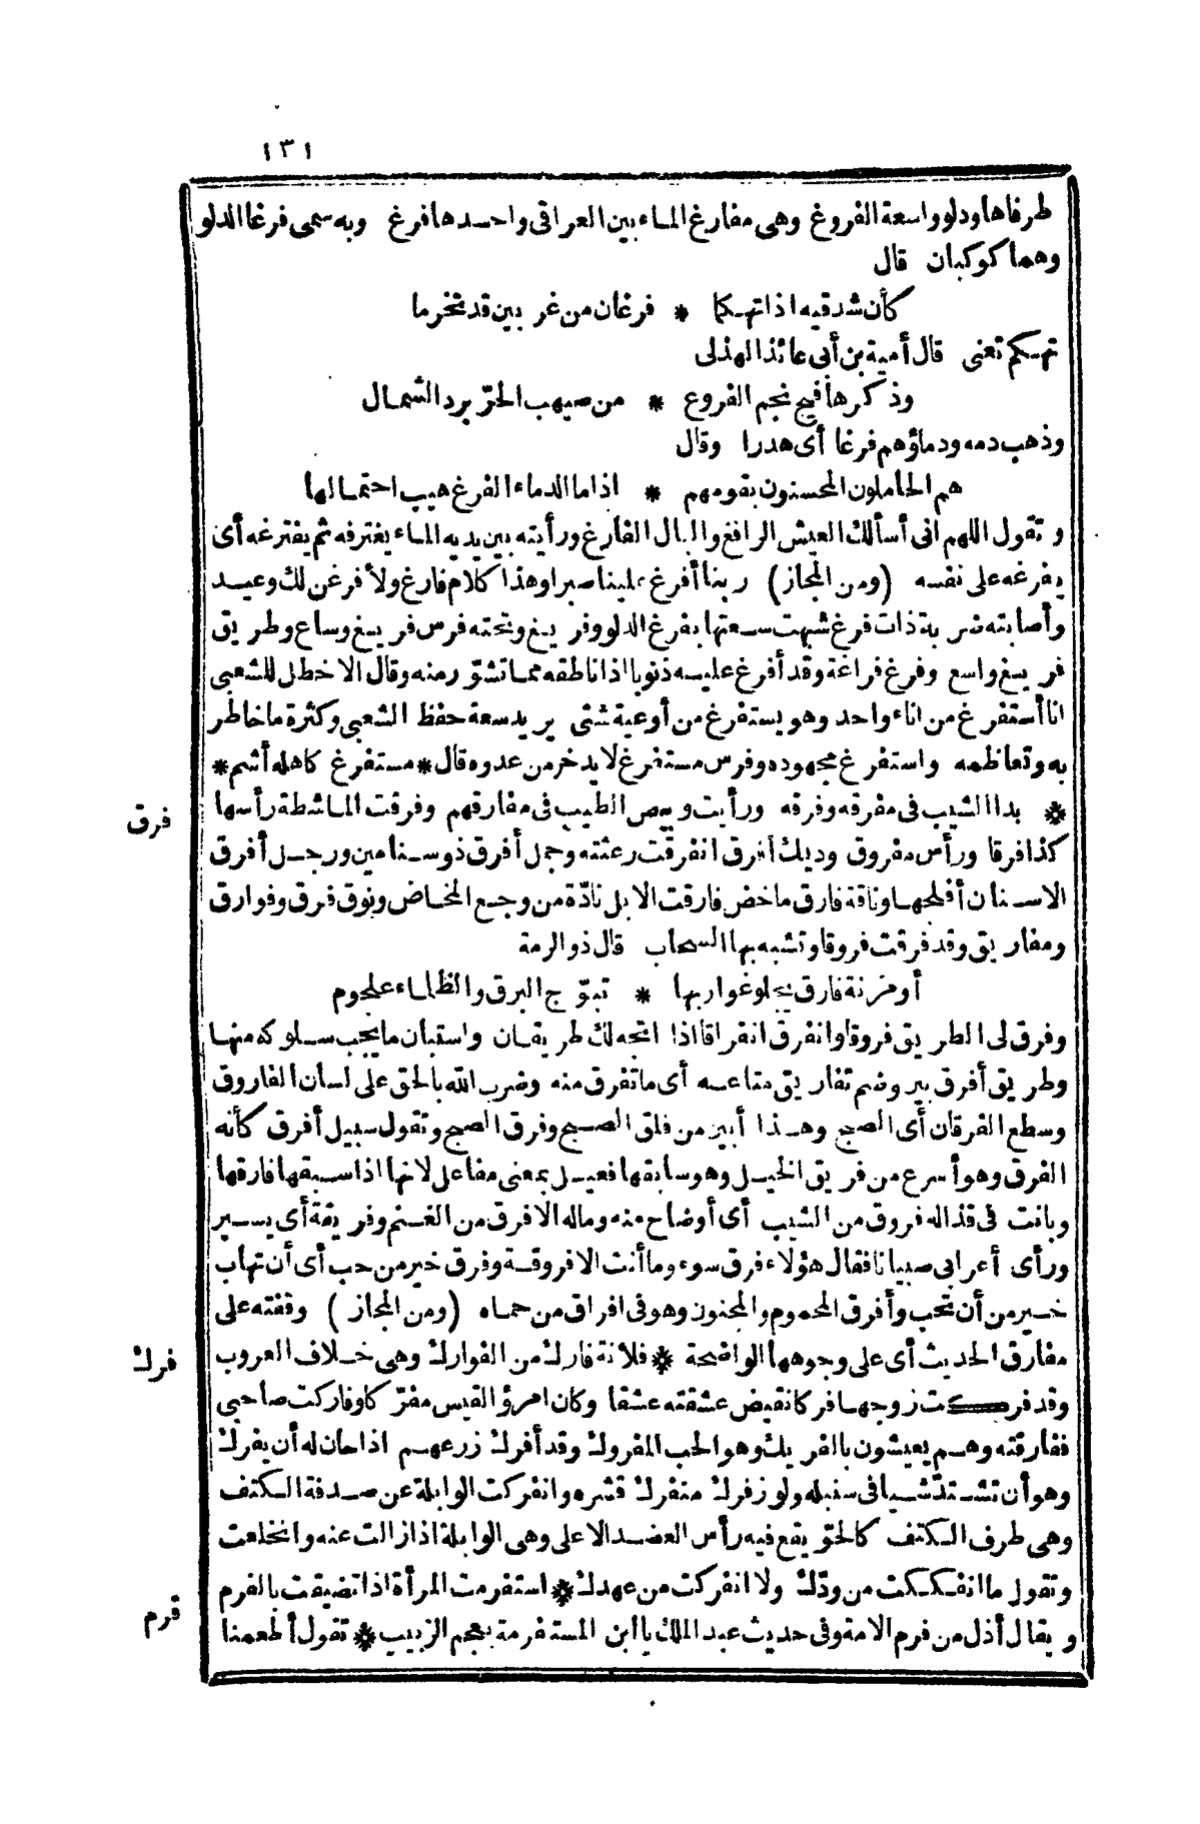 ١٣١
طرفاها ودلو واسعة الفروغ وهى مفارغ الماء بين العراقى واحدها فرغ وبه سمى فرغا الدلو
وهما كوكبان قال
كأن شدقيه اذا تهكما * فرغان من غربين قد تخرما
تهكم تعنى قال أمية بن أبى عائذ الهذلى
وذكرها فيح نجم الفروغ * من صيهب الحرّ برد الشمال
وذهب دمه ودماؤهم فرغا أى هدرا وقال
هم الحاملون المحسنون بقومهم * اذا ما الدماء الفرغ هيب احتمالها
وتقول اللهم انى أسألك العيش الرافغ والبال الفارغ ورأيته بين يديه الماء يغترفه ثم يفترغه أى
يفرغه على نفسه (ومن المجاز) ربنا أفرغ علينا صبرا وهذا كلام فارغ ولأفرغن لك وعيد
وأصابته ضربة ذات فرغ شبهت سعتها بفرغ الدلو وفريغ وتحته فرس فريغ وساع وطريق
فريغ واسع وفرغ فراغة وقد أفرغ عليه ذنوبا اذا ناطقه بما تشوّر منه وقال الاخطل للشعبى
انا أستفرغ من اناء واحد وهو يستفرغ من أوعية شتى يريد سعة حفظ الشعبى وكثرة ما خاطر
به وتعاظمه واستفرغ مجهوده وفرس مستفرغ لا يدخر من عدوه قال * مستفرغ كاهله أشم *
فرق
* بدا الشيب فى مفرقه وفرقه ورأيت وبيص الطيب فى مفارقهم وفرقت الماشطة رأسها
كذا فرقا ورأس مفروق وديك أفرق انفرقت رعثته وجمل أفرق ذو سنامين ورجل أفرق
الاسنان أفلجها وناقة فارق ماخض فارقت الابل نادّة من وجع المخاض ونوق فرق وفوارق
ومفاريق وقد فرقت فروقا وتشبه بها السحاب قال ذو الرمة
أو مزنة فارق يجلو غواربها * تبوّج البرق والظلماء علجوم
وفرق لى الطريق فروقا وانفرق انفراقا اذا اتجه لك طريقان واستبان ما يجب سلوكه منها
وطريق أفرق بين وضم تفاريق متاعه أى ما تفرق منه وضرب الله بالحق على لسان الفاروق
وسطع الفرقان أى الصبح وهذا أبين من فلق الصبح وفرق الصبح وتقول سبيل أفرق كأنه
الفرق وهو أسرع من فريق الخيل وهو سابقها فعيل بمعنى مفاعل لانها اذا سبقها فارقها
وبانت فى قذاله فروق من الشيب أى أوضاح منه وماله الا فرق من الغنم وفريقة أى يسير
ورأى أعرابى صبيانا فقال هؤلاء فرق سوء وما أنت الا فروقة وفرق خير من حب أى أن تهاب
خير من أن تحب وأفرق المحموم والمجنون وهو فى افراق من حماه (ومن المجاز) وقفته على
فرك
مفارق الحديث أى على وجوهها الواضحة * فلانة فارك من الفوارك وهى خلاف العروب
وقد فركت زوجها فركا نقيض عشقته عشقا وكان امرؤ القيس مفرّكا وفاركت صاحبى
ففارقته وهم يعيشون بالفريك وهو الحب المفروك وقد أفرك زرعهم اذا حان له أن يفرك
وهو أن تشتدّ شيا فى سنبله ولوز فرك منفرك قشره وانفركت الوابلة عن صدفة الكتف
وهى طرف الكتف كالحق يقع فيه رأس العضد الاعلى وهى الوابلة اذا زالت عنه وانخلعت
فرم
وتقول ما انفككت من ودّك ولا انفركت من عهدك * استفرمت المرأة اذا تضيقت بالفرم
ويقال أذل من فرم الامة وفى حديث عبد الملك يا ابن المستفرمة بعجم الزبيب * تقول أطعمنا